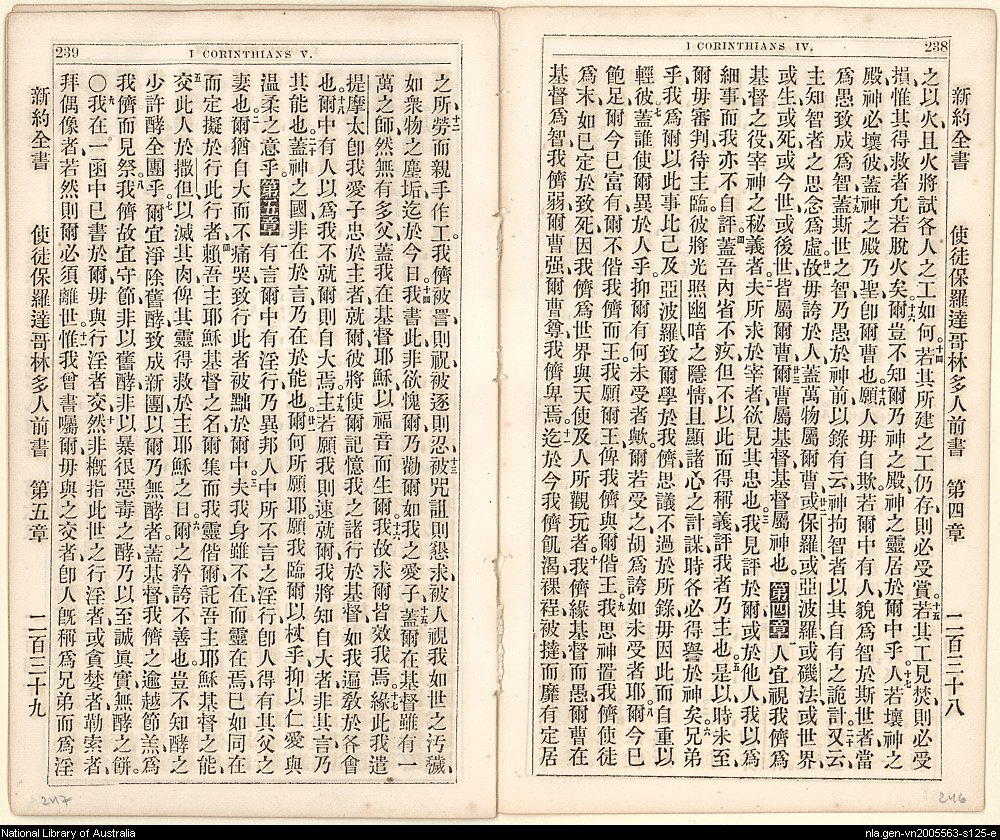 238
I CORINTHIANS IV.
新約全書 使徒保羅達哥林多人前書 第四章 二百三十八
之以火且火將試各人之工如何。十四若其所建之工仍存、則必受賞。十五若其工見焚、則必受
損、惟其得救者、允若脫火矣。十六爾豈不知爾乃神之殿、神之靈居於爾中乎。十七人若壞神之
殿、神必壞彼、蓋神之殿乃聖、卽爾曹也。十八願人毋自欺、若爾中有人貌爲智於斯世者、當
爲愚、致成爲智。十九蓋斯世之智、乃愚於神前、以錄有云、神拘智者以其自有之詭計。二十又云、
主知智者之思念爲虛。廿一故毋誇於人、蓋萬物屬爾曹。廿二或保羅、或亞波羅、或磯法、或世界、
或生、或死、或今世、或後世、皆屬爾曹。廿三爾曹屬基督、基督屬神也。第四章 一人宜視我儕爲
基督之役、宰神之秘義者。二夫所求於宰者、欲見其忠也。三我見評於爾、或於他人、我以爲
細事、而我亦不自評。四蓋吾內省不疚、但不以此而得稱義、評我者乃主也。五是以時未至、
爾毋審判、待主臨、彼將光照幽暗之隱情、且顯諸心之計謀、時各必得譽於神矣。六兄弟
乎、我爲爾以此事比己及亞波羅、致爾學於我儕、思議不過於所錄、毋因此而自重以
輕彼。七蓋誰使爾異於人乎、抑爾有何未受者歟、爾若受之、胡爲誇如未受者耶。八爾今已
飽足、爾今已富有、爾不偕我儕而王、我願爾王、俾我儕與爾偕王。九我思神置我儕使徒
爲末、如已定於致死、因我儕爲世界與天使及人所觀玩者。十我儕緣基督而愚、爾曹在
基督爲智、我儕弱、爾曹强、爾曹尊、我儕卑焉。十一迄於今我儕飢渴裸裎、被撻、而靡有定居
239
I CORINTHIANS V.
之所、十二勞而親手作工。我儕被詈則祝、被逐則忍、十三被咒詛則懇求、被人視我如世之汚穢、
如衆物之塵垢、迄於今日。十四我書此非欲愧爾、乃勸爾如我之愛子。十五蓋爾在基督雖有一
萬之師、然無有多父、蓋我在基督耶穌以福音而生爾。十六我故求爾皆效我焉。十七緣此我遣
提摩太、卽我愛子、忠於主者就爾、彼將使爾記憶我之諸行於基督、如我遍敎於各會
也。十八爾中有人以爲我不就爾、則自大焉。十九主若願、我則速就爾、我將知自大者非其言、乃
其能也。二十蓋神之國非在於言、乃在於能也。廿一爾何所願耶、願我臨爾以杖乎、抑以仁愛與
溫柔之意乎。第五章 一有言爾中有淫行、乃異邦人中所不言之淫行、卽人得有其父之
妻也。二爾猶自大、而不痛哭、致行此者被黜於爾中。三夫我身雖不在、而靈在焉、已如同在
而定擬於行此行者。四賴吾主耶穌基督之名、爾集而我靈偕爾、託吾主耶穌基督之能、
五交此人於撒但、以滅其肉、俾其靈得救於主耶穌之日。六爾之矜誇不善也、豈不知酵之
少許酵全團乎。七爾宜淨除舊酵、致成新團、以爾乃無酵者、蓋基督我儕之逾越節羔、爲
我儕而見祭。八我儕故宜守節、非以舊酵、非以暴很惡毒之酵、乃以至誠眞實無酵之餅。
〇九我在一函中已書於爾、毋與行淫者交。十然非槪指此世之行淫者、或貪婪者、勒索者、
拜偶像者、若然、則爾必須離世。十一惟我曾書囑爾毋與之交者、卽人旣稱爲兄弟、而爲淫
新約全書 使徒保羅達哥林多人前書 第五章 二百三十九
247
246
National Library of Australia
nla.gen-vn2005563-s125-e